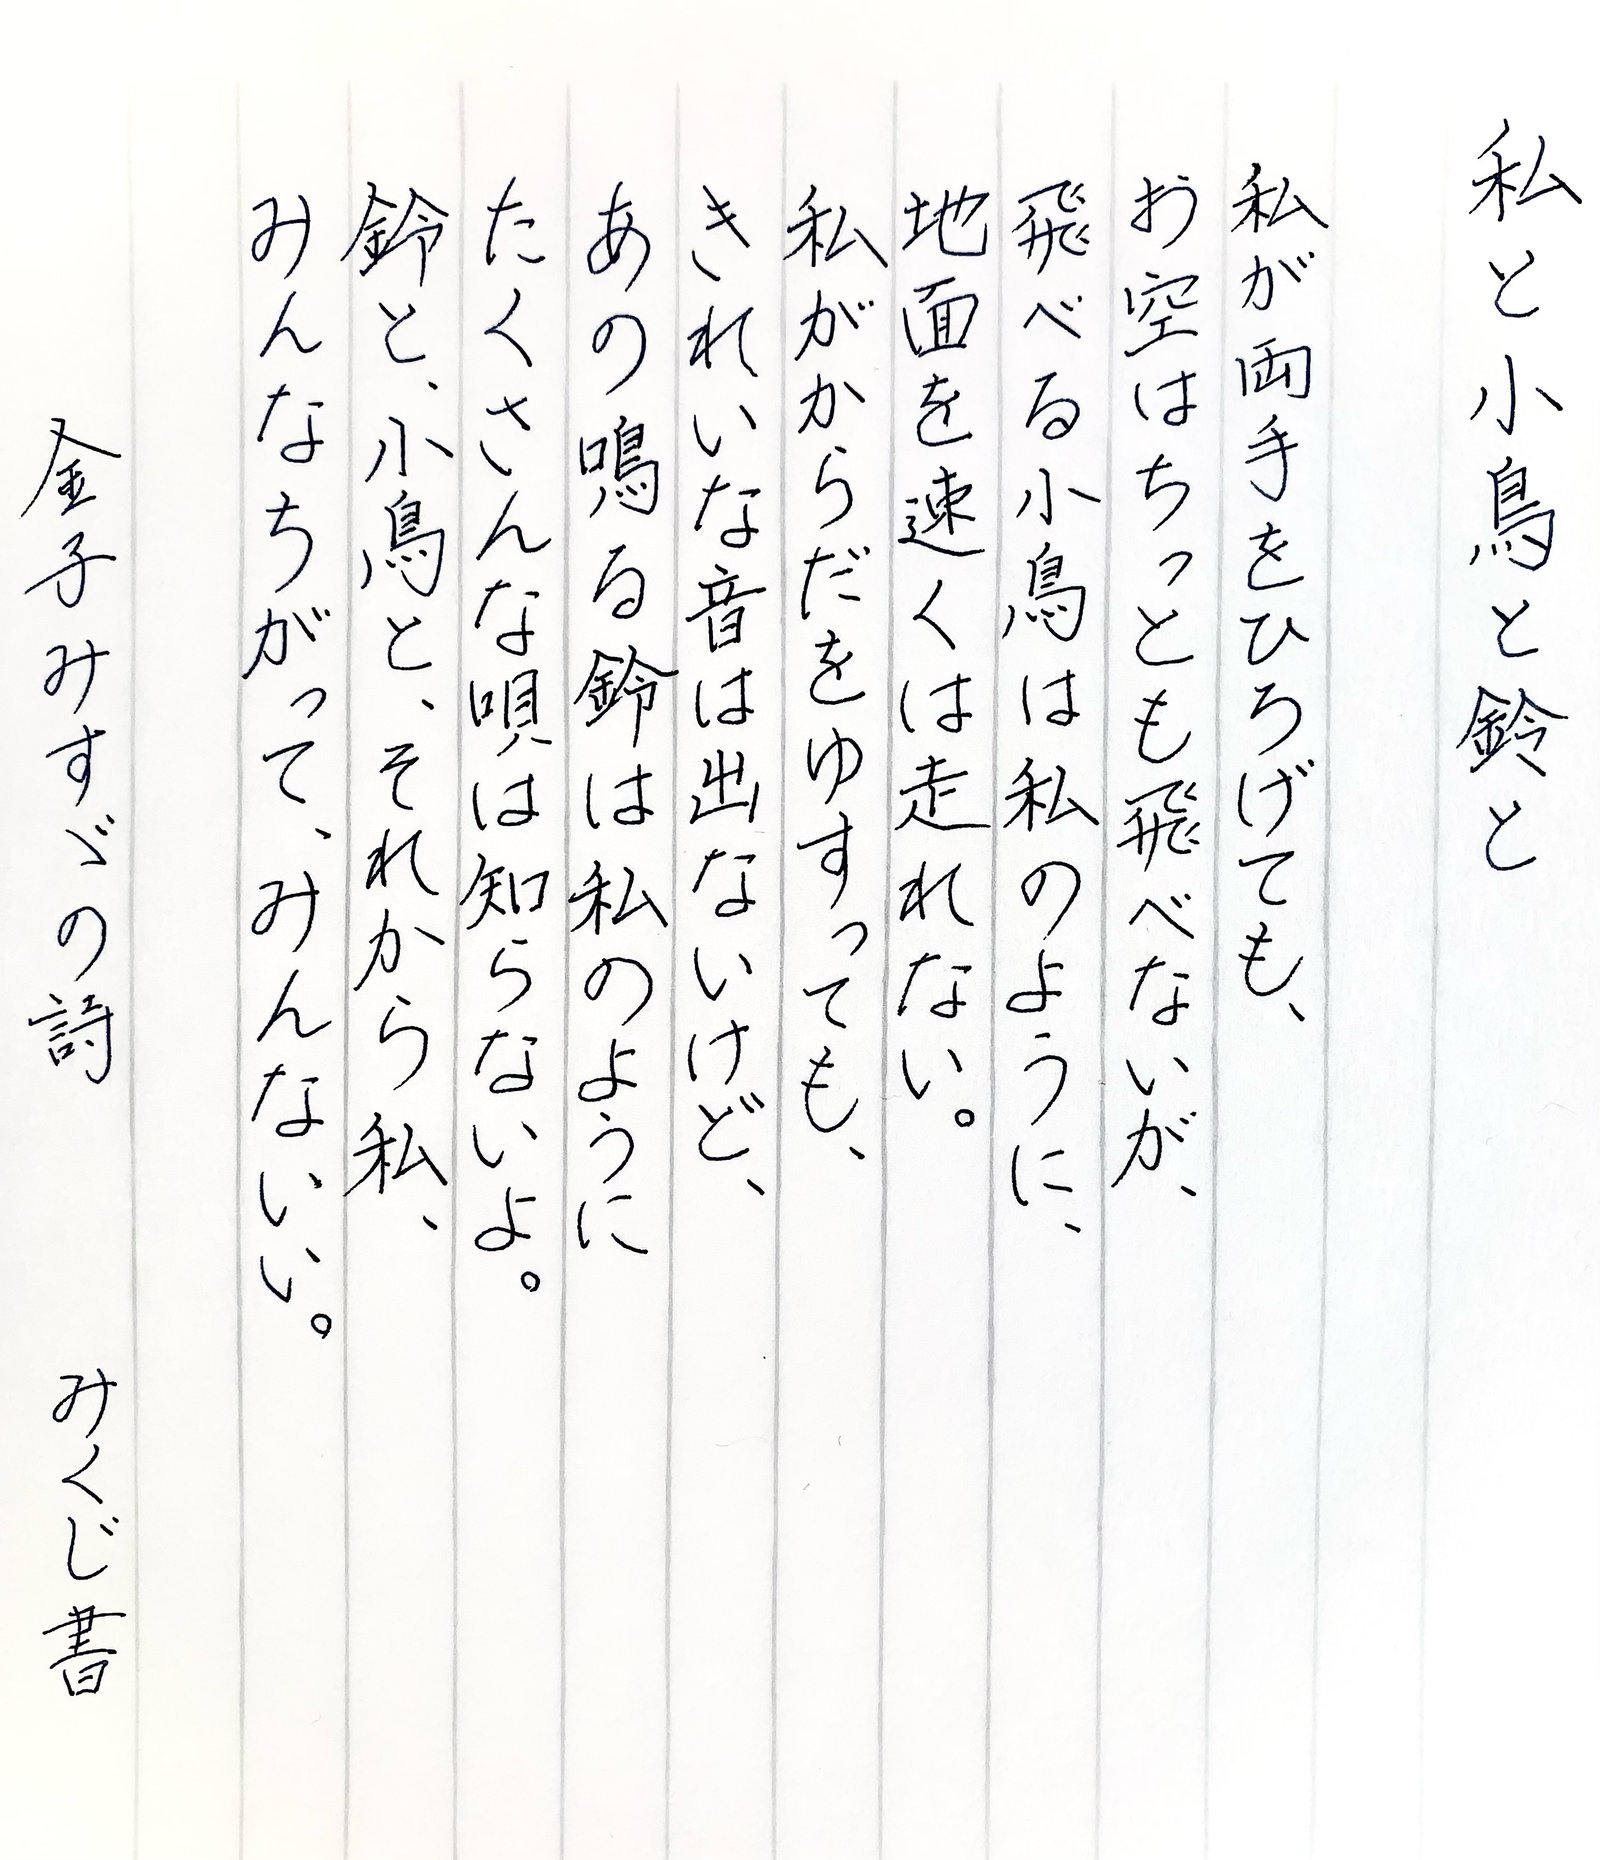 私と小鳥と鈴と
私が両手をひろげても、
お空はちっとも飛べないが、
飛べる小鳥は私のように、
地面を速くは走れない。
私がからだをゆすっても、
きれいな音は出ないけど、
あの鳴る鈴は私のように
たくさんな唄は知らないよ。
鈴と、小鳥と、それから私、
みんなちがって、みんないい。
金子みすゞの詩 みくじ書